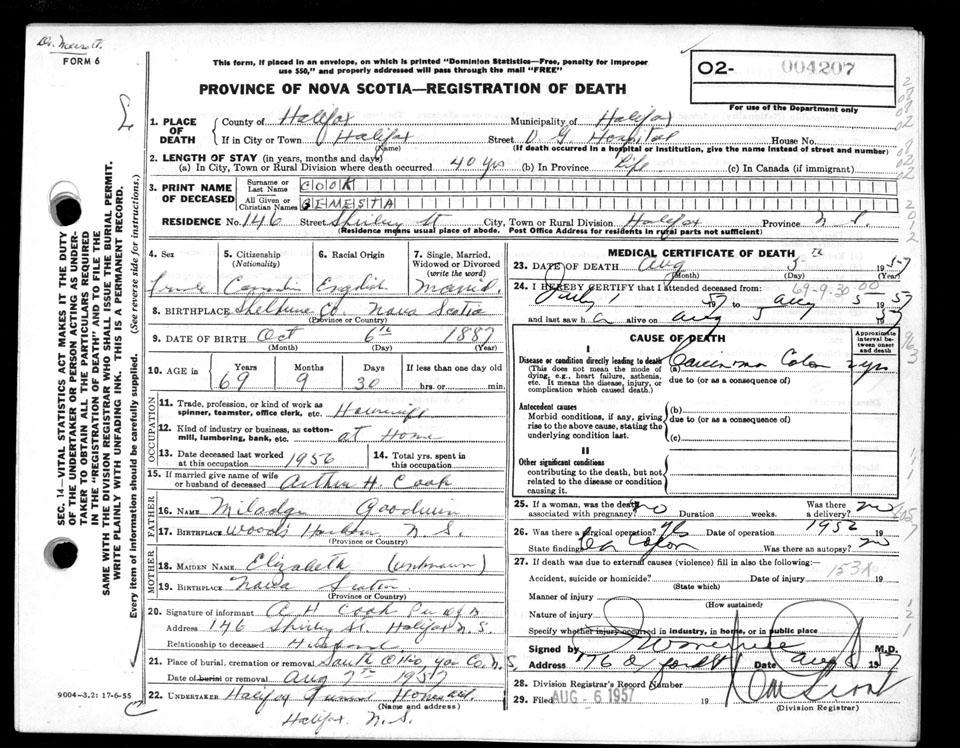 FORM 6
This form, if placed in an envelope, on which is printed "Dominion Statistics—Free, penalty for improper
use $50," and properly addressed will pass through the mail "FREE"
PROVINCE OF NOVA SCOTIA—REGISTRATION OF DEATH
O2- 004207
For use of the Department only
SEC. 14—VITAL STATISTICS ACT MAKES IT THE DUTY
OF THE UNDERTAKER OR PERSON ACTING AS UNDER-
TAKER TO OBTAIN ALL THE PARTICULARS REQUIRED
IN THE "REGISTRATION OF DEATH" AND TO FILE THE
SAME WITH THE DIVISION REGISTRAR WHO SHALL ISSUE THE BURIAL PERMIT.
WRITE PLAINLY WITH UNFADING INK. THIS IS A PERMANENT RECORD.
Every item of information should be carefully supplied. (See reverse side for instructions.)
1. PLACE OF DEATH
County of Halifax Municipality of Halifax
If in City or Town Halifax Street V G Hospital House No.
(Name) (If death occurred in a hospital or institution, give the name instead of street and number)
2. LENGTH OF STAY (in years, months and days)
(a) In City, Town or Rural Division where death occurred 40 yrs (b) In Province Life (c) In Canada (if immigrant)
3. PRINT NAME OF DECEASED
Surname or Last Name COOK
All Given or Christian Names GEMESTA
RESIDENCE No. 146 Street Shirley St City, Town or Rural Division Halifax Province N S.
(Residence means usual place of abode. Post Office Address for residents in rural parts not sufficient)
4. Sex female
5. Citizenship (Nationality) Canadian
6. Racial Origin English
7. Single, Married, Widowed or Divorced (write the word) Married.
8. BIRTHPLACE Shelburne Co. Nova Scotia
(Province or Country)
9. DATE OF BIRTH Oct 6th 1887
(Month) (Day) (Year)
10. AGE in Years 69 Months 9 Days 30 If less than one day old hrs. or min.
OCCUPATION
11. Trade, profession, or kind of work as spinner, teamster, office clerk, etc. Housewife
12. Kind of industry or business, as cotton-mill, lumbering, bank, etc. at Home
13. Date deceased last worked at this occupation 1956
14. Total yrs. spent in this occupation
15. If married give name of wife or husband of deceased Arthur H. Cook
FATHER
16. NAME Goodwin
17. BIRTHPLACE Woods Harbour N. S.
(Province or Country)
MOTHER
18. MAIDEN NAME Elizabeth (unknown)
19. BIRTHPLACE Nova Scotia
(Province or Country)
20. Signature of informant A H Cook Per
Address 146 Shirley St. Halifax N. S.
Relationship to deceased Husband
21. Place of burial, cremation or removal South Ohio, Yar Co. N. S.
Date of burial or removal Aug 7th 1957
22. UNDERTAKER Halifax Funeral Home Ltd.
(Name and address)
Halifax. N. S.
9004-3.2: 17-6-55
MEDICAL CERTIFICATE OF DEATH
23. DATE OF DEATH Aug 5th 1957
(Month) (Day) (Year)
69-9-30-00
24. I HEREBY CERTIFY that I attended deceased from:
July 1 57 to Aug 5 1957
and last saw h alive on Aug 5 1957
CAUSE OF DEATH
Approximate interval between onset and death
I
Disease or condition directly leading to death
(This does not mean the mode of dying, e.g., heart failure, asthenia, etc. It means the disease, injury, or complication which caused death.)
(a) Carcinoma Colon 2 yrs
due to (or as a consequence of)
Antecedent causes
Morbid conditions, if any, giving rise to the above cause, stating the underlying condition last.
(b)
due to (or as a consequence of)
(c)
II
Other significant conditions
contributing to the death, but not related to the disease or condition causing it.
25. If a woman, was the death associated with pregnancy? no Duration weeks. Was there a delivery? no
26. Was there a surgical operation? Yes Date of operation 1956
State findings Ca Colon Was there an autopsy? no
27. If death was due to external causes (violence) fill in also the following:
153X
Accident, suicide or homicide? Date of injury 19
(State which)
Manner of injury
(How sustained)
Nature of injury
Specify whether injury occurred in industry, in home, or in public place
Signed by M.D.
Address 176 Oxford St Date Aug 6 1957
28. Division Registrar's Record Number
29. Filed AUG - 6 1957 19
(Division Registrar)